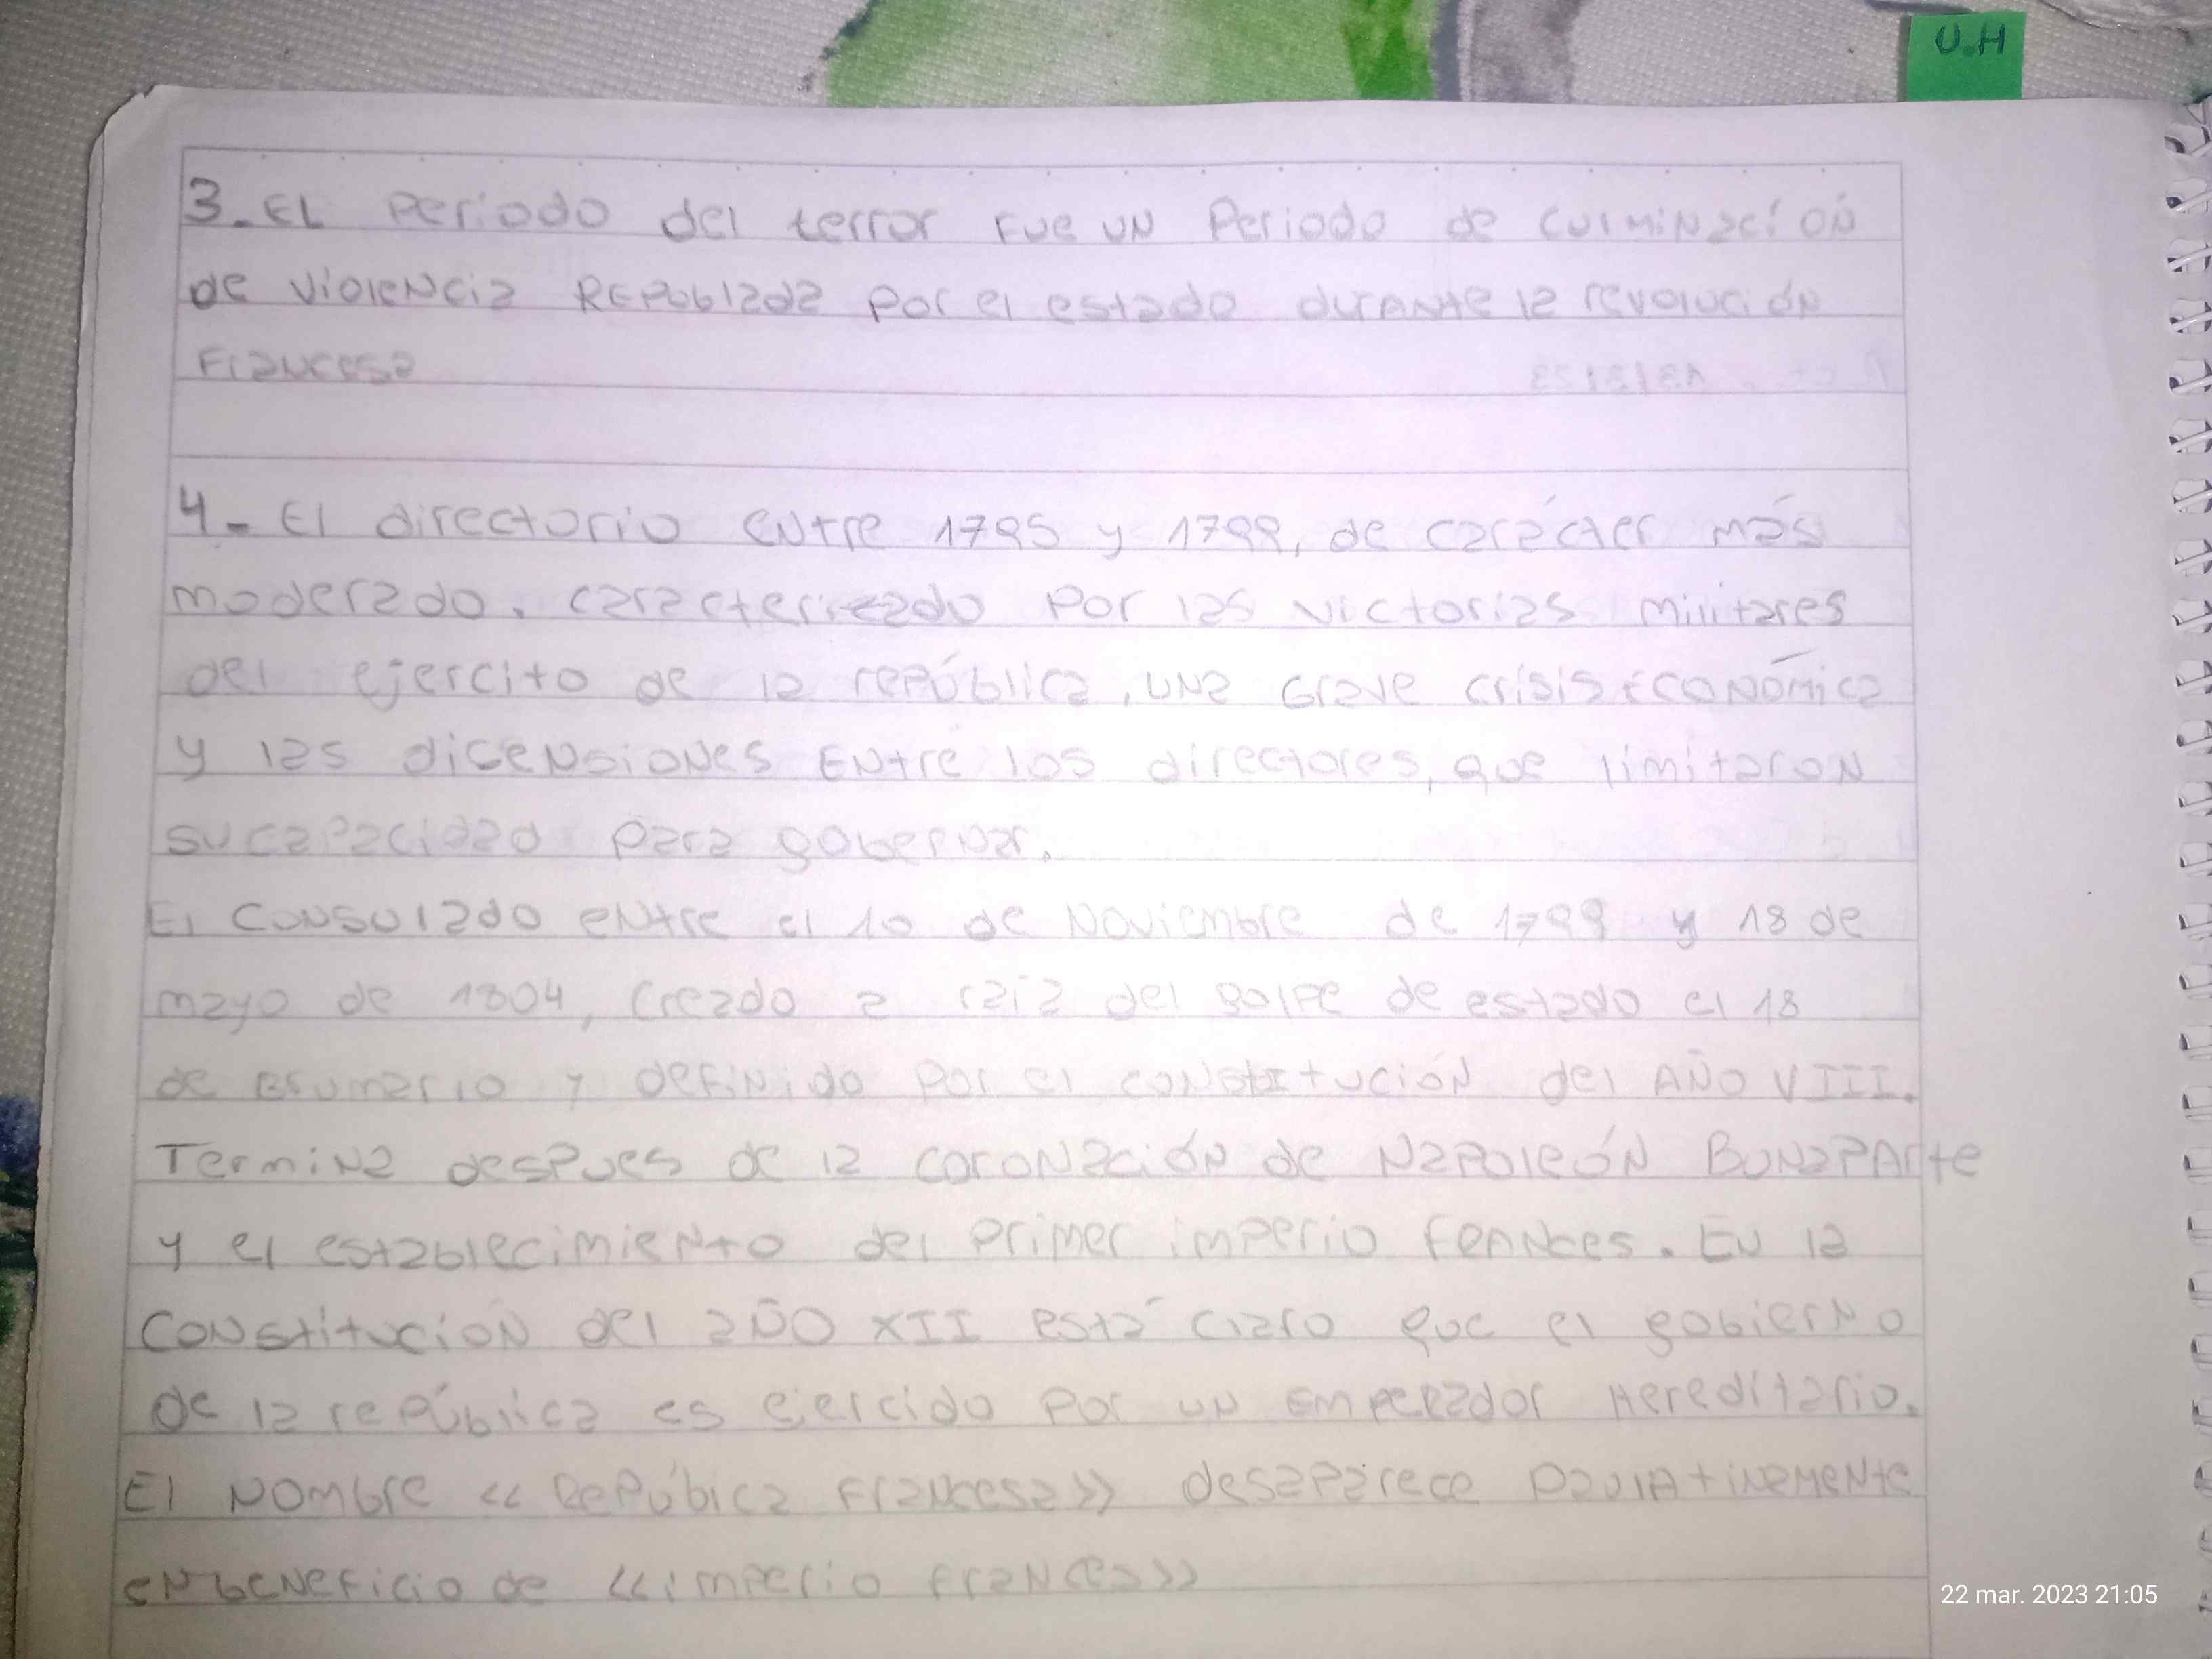 U.H
3. EL Periodo del terror fue un Periodo de culminación
de violencia REPUblada por el estado durante la revolución
Francesa
4- El directorio entre 1795 y 1799, de carácter más
moderado. caracterizado por las victorias militares
del ejercito de la república, una Grave crisis económica
y las dicensiones Entre los directores, que limitaron
su capacidad para gobernar.
El Consulado entre el 10 de Noviembre de 1799 y 18 de
mayo de 1804, Creado a raiz del golpe de estado el 18
de Brumario y definido por el constitución del AÑO VIII.
Termina despues de la coronación de Napoleón BUNAPArte
y el establecimiento del primer imperio frances. En la
Constitución del año XII está claro que el gobierno
de la república es ejercido por un Emperador Hereditario.
El Nombre << Repúbica Francesa>> desaparece paulAtivamente
en beneficio de <<imperio frances>>
22 mar. 2023 21:05